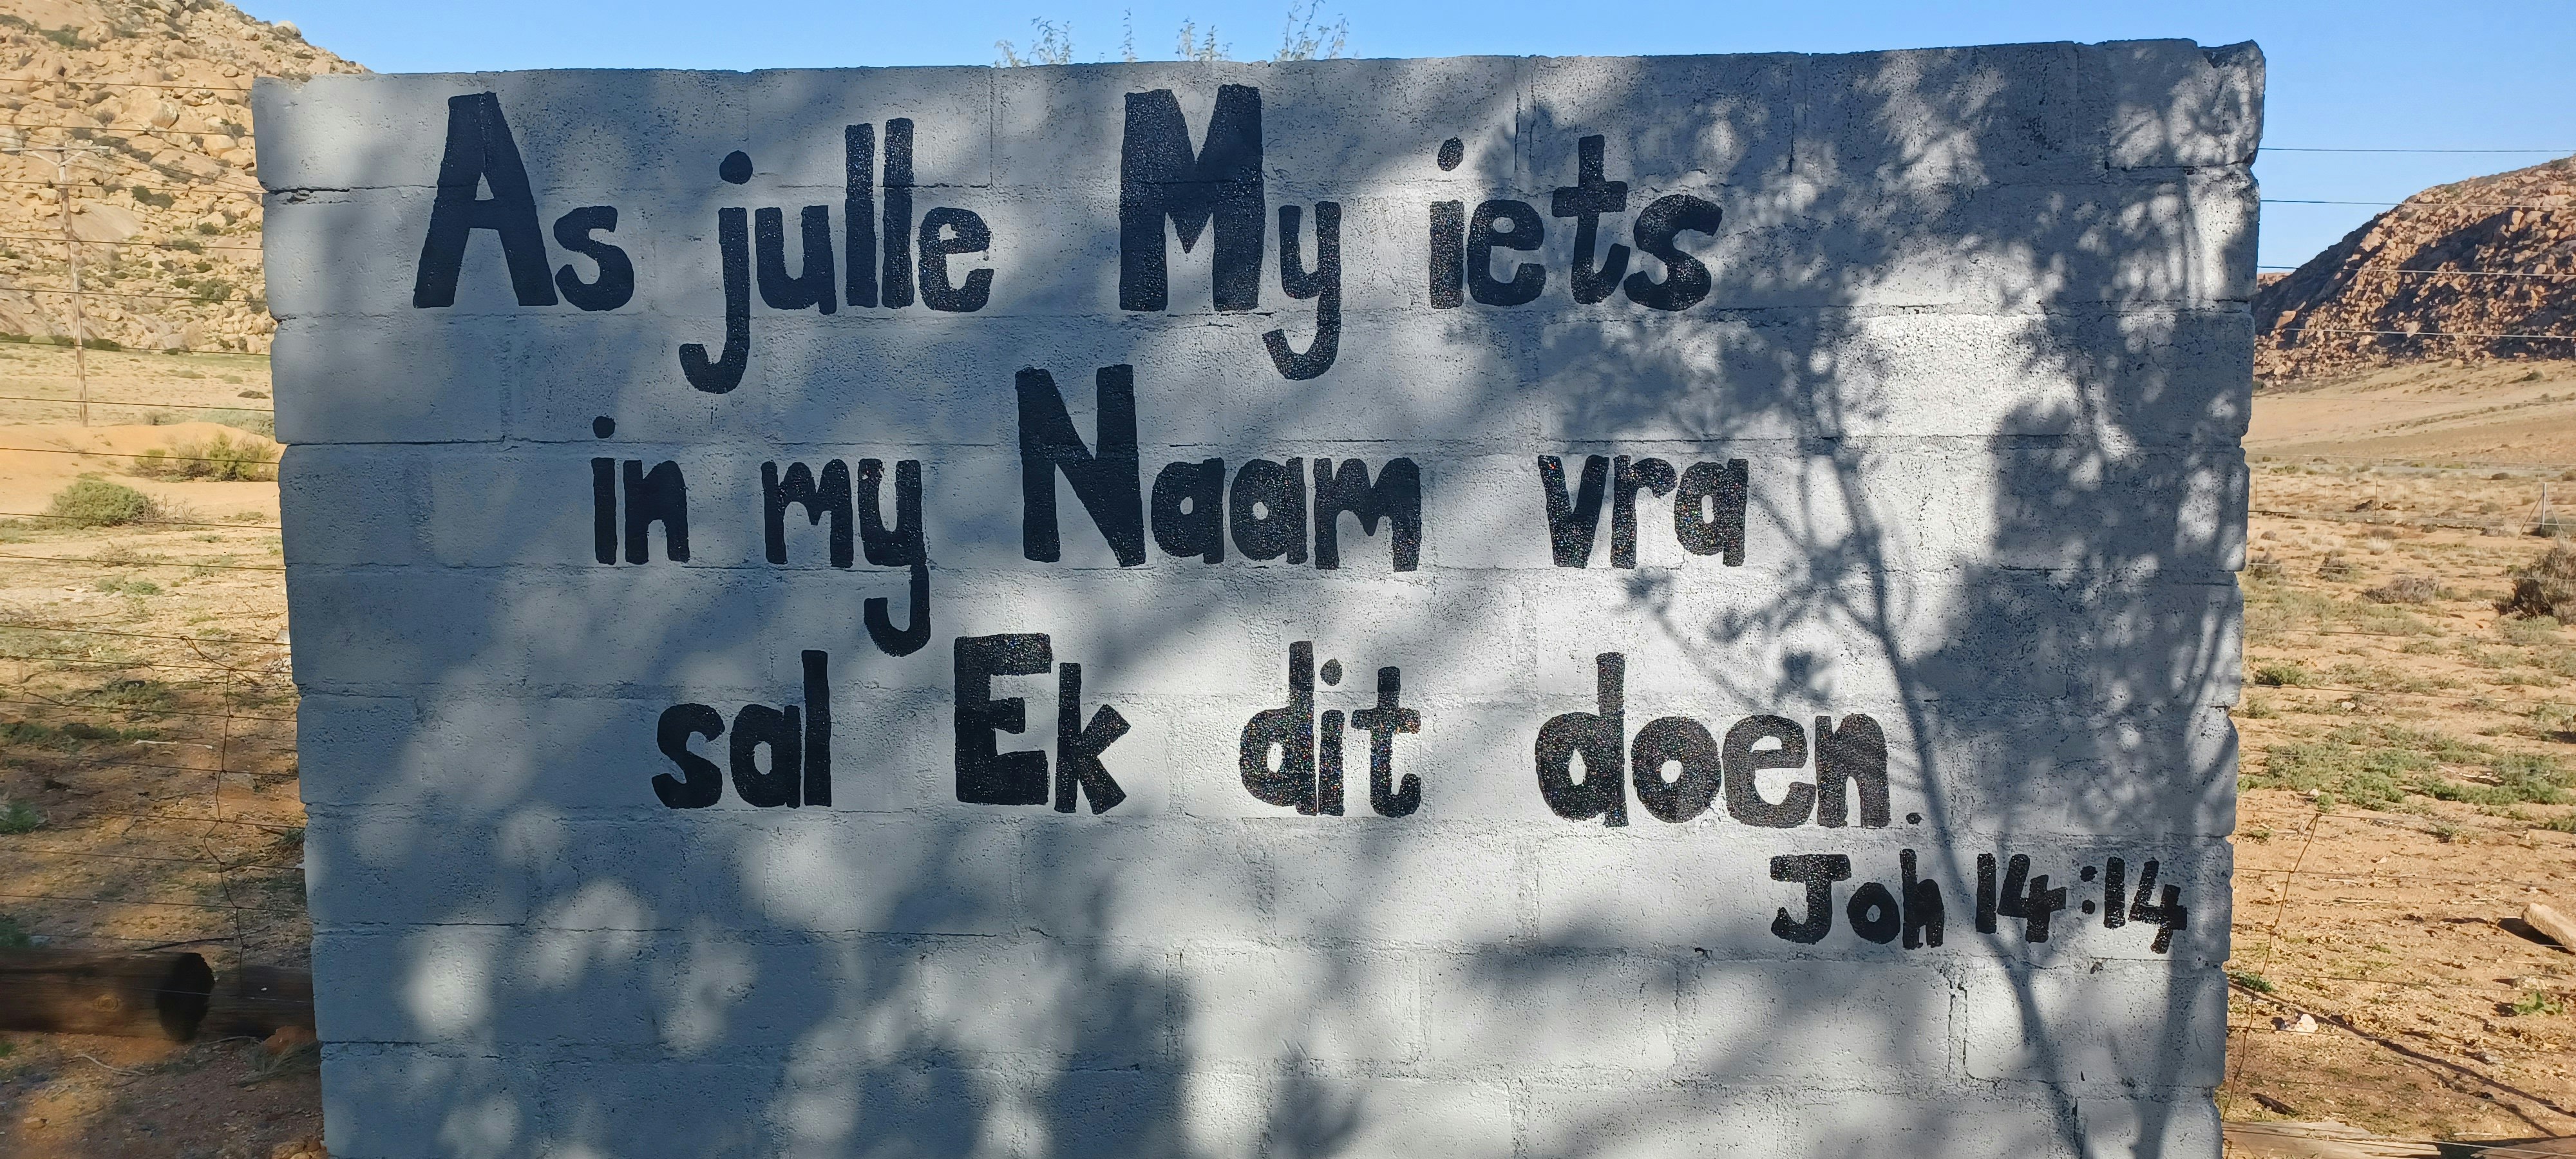 As julle My iets
in my Naam vra
sal Ek dit doen.
Joh 14:14